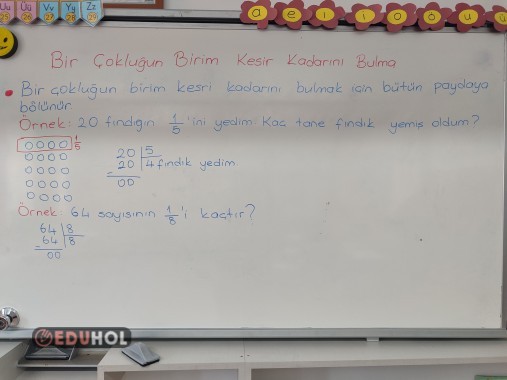 Uu Üü Vv Yy Zz
25 26 27 28 29
a e ı i o ö u ü
Bir Çokluğun Birim Kesir Kadarını Bulma
• Bir çokluğun birim kesri kadarını bulmak için bütün paydaya
bölünür.
Örnek: 20 fındığın 1/5 'ini yedim. Kaç tane fındık yemiş oldum?
1/5
20 | 5
- 20 | 4 fındık yedim
00
Örnek: 64 sayısının 1/8 'i kaçtır?
64 | 8
- 64 | 8
00
EDUHOL